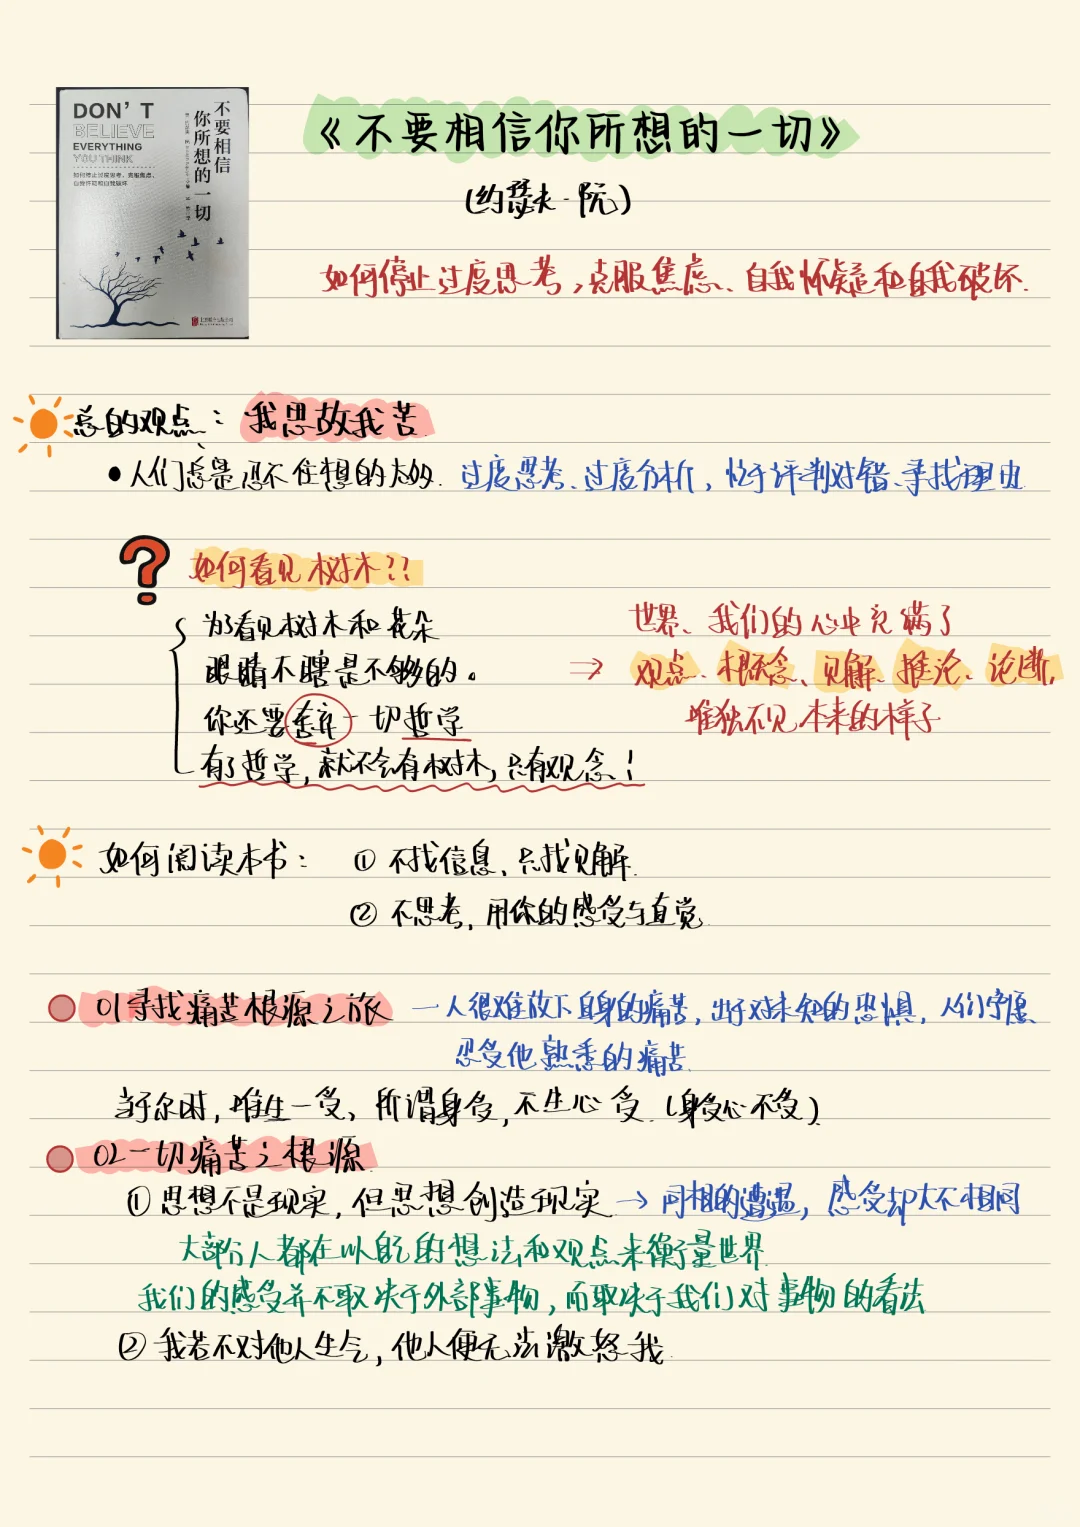 DON'T
BELIEVE
EVERYTHING
YOU THINK
如何停止过度思考，克服焦虑、
自我怀疑和自我破坏
不要相信
你所想的一切
《不要相信你所想的一切》
(约瑟夫·阮)
如何停止过度思考，克服焦虑、自我怀疑和自我破坏.
总的观点：我思故我苦
人们总是忍不住想的太多. 过度思考、过度分析，忙于评判对错、寻找理由
? 如何看见树木??
为了看见树木和花朵
眼睛不瞎是不够的。
你还要丢弃一切哲学
有了哲学，就不会有树木，只有观念！
世界、我们的心中充满了
⇒ 观点、概念、见解、推论、论断，
唯独不见本来的样子
如何阅读本书： ① 不找信息、只找见解.
② 不思考，用你的感受与直觉
01寻找痛苦根源之旅 一人很难放下自身的痛苦，出于对未知的恐惧，人们宁愿
忍受他熟悉的痛苦.
当于尔时，唯生一受、所谓身受，不生心受.（身受心不受）
02一切痛苦之根源
① 思想不是现实，但思想创造现实 → 同相的遭遇，感受却大不相同
大部分人都在以自己的想法和观点来衡量世界
我们的感受并不取决于外部事物，而取决于我们对事物的看法
② 我若不对他人生气，他人便无法激怒我.